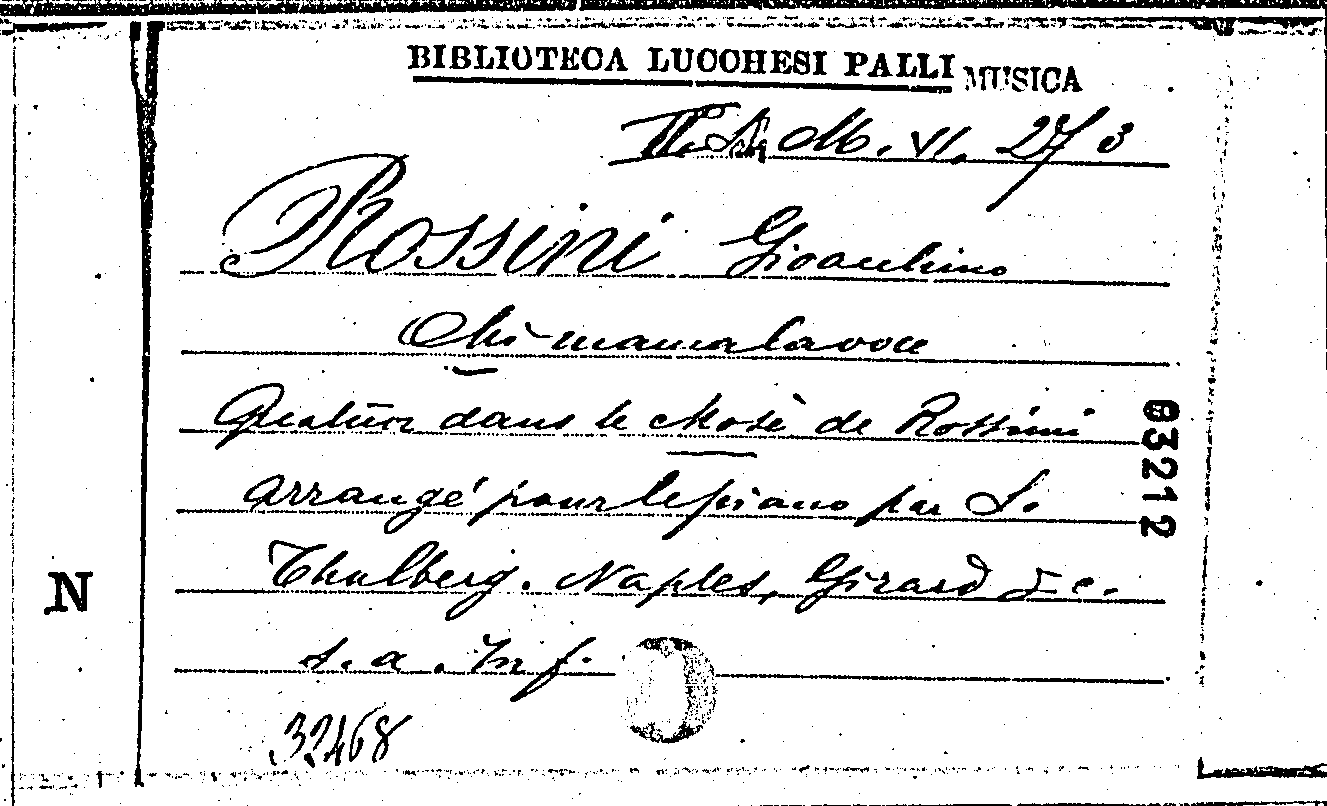 BIBLIOTECA LUCCHESI PALLI MUSICA
M. VI. 27/3
Rossini Gioacchino
Mi manca la voce
Quatuor dans le Mosè de Rossini
arrangé pour le piano par S.
Thalberg. Naples, Girard & C.
s. a. In f.
32468
N
63212